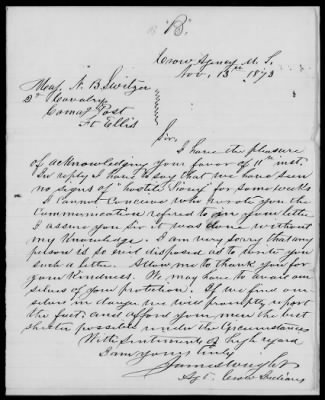 "B"
Crow Agency M. T.
Nov. 13th 1873
Maj. N. B. Switzer
2d Cavalry
Comdg Post
Ft Ellis
Sir,
I have the pleasure
of acknowledging your favor of 11th inst.
In reply I have to say that we have seen
no signs of "hostile Sioux" for some weeks
I cannot conceive who wrote you the
communication refered to in your letter
I assure you Sir it was done without
my knowledge. I am very sorry that any
person is so evil disposed as to write you
such a letter. Allow me to thank you for
your kindness. We may have to avail our
selves of your protection. If we find our
selves in danger we will promptly report
the fact, and afford your men the best
shelter possible under the circumstances
With Sentiments of high regard
I am yours truly
James Wright
Agt. Crow Indians